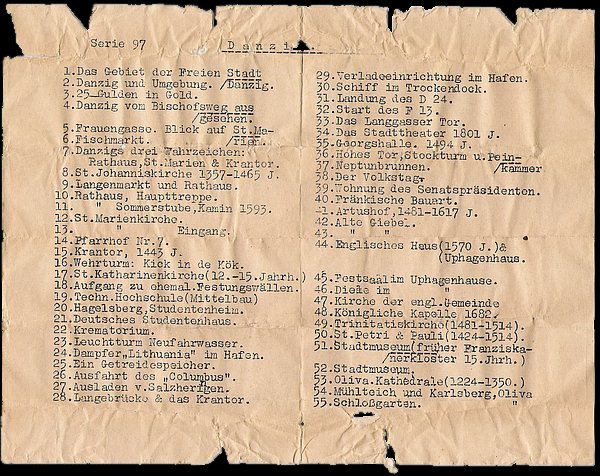 Serie 97
Danzig.
1.Das Gebiet der Freien Stadt
2.Danzig und Umgebung. /Danzig.
3.25-Gulden in Gold.
4.Danzig vom Bischofsweg aus
/gesehen.
5.Frauengasse. Blick auf St.Ma-
6.Fischmarkt. /rien.
7.Danzigs drei Wahrzeichen:
Rathaus,St.Marien & Krantor.
8.St.Johanniskirche 1357-1465 J.
9.Langenmarkt und Rathaus.
10.Rathaus, Haupttreppe.
11. " Sommerstube,Kamin 1593.
12.St.Marienkirche.
13. " Eingang.
14.Pfarrhof Nr.7.
15.Krantor, 1443 J.
16.Wehrturm: Kick in de Kök.
17.St.Katharinenkirche(12.-15.Jahrh.)
18.Aufgang zu ehemal.Festungswällen.
19.Techn.Hochschule(Mittelbau)
20.Hagelsberg,Studentenheim.
21.Deutsches Studentenhaus.
22.Krematorium.
23.Leuchtturm Neufahrwasser.
24.Dampfer„Lithuania" im Hafen.
25.Ein Getreidespeicher.
26.Ausfahrt des „Columbus".
27.Ausladen v.Salzheringen.
28.Langebrücke & das Krantor.
29.Verladeeinrichtung im Hafen.
30.Schiff im Trockendock.
31.Landung des D 24.
32.Start des F 13.
33.Das Langgasser Tor.
34.Das Stadttheater 1801 J.
35.Georgshalle. 1494 J.
36.Hohes Tor,Stockturm u.Pein-
37.Neptunbrunnen. /kammer
38.Der Volkstag.
39.Wohnung des Senatspräsidenten.
40.Fränkische Bauart.
41.Artushof,1481-1617 J.
42.Alte Giebel.
43. " "
44.Englisches Haus(1570 J.)&
(Uphagenhaus.
45.Festsaal im Uphagenhause.
46.Diele im "
47.Kirche der engl.Gemeinde
48.Königliche Kapelle 1682.
49.Trinitatiskirche(1481-1514).
50.St.Petri & Pauli(1424-1514).
51.Stadtmuseum(früher Franziska-
/nerkloster 15.Jhrh.)
52.Stadtmuseum.
53.Oliva.Kathedrale(1224-1350.)
54.Mühlteich und Karlsberg,Oliva
55.Schloßgarten. "